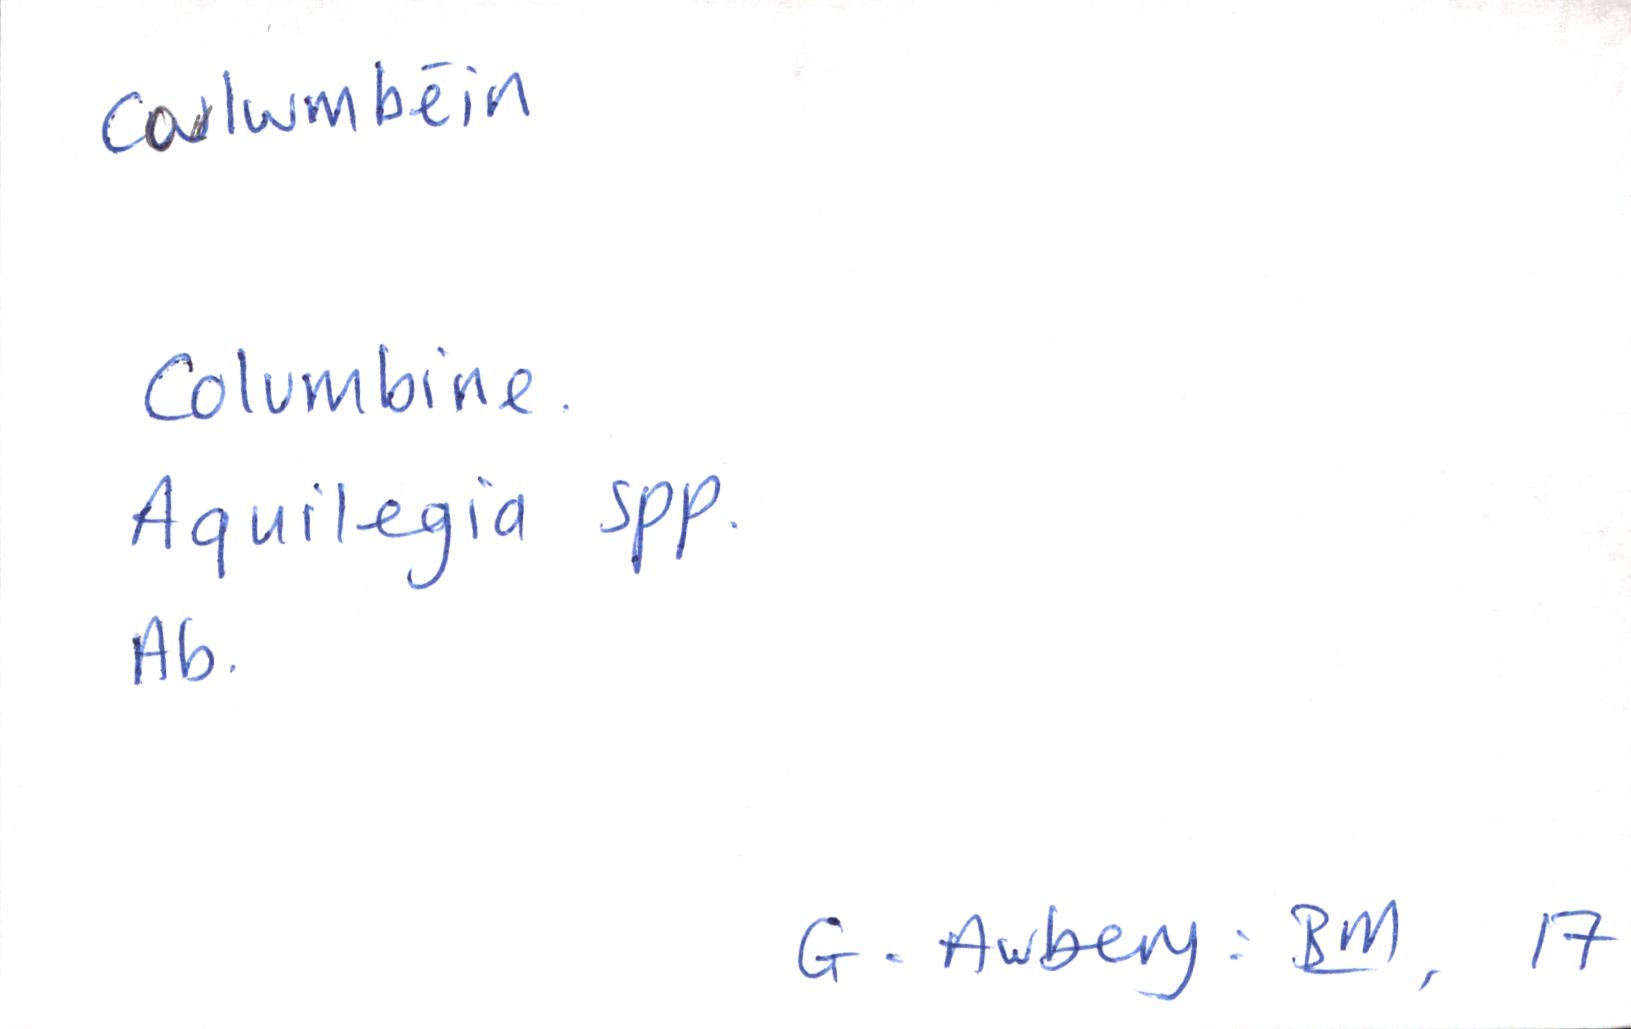 Columbine.
Aquilegia spp.
Ab.
G. Awbery: BM, 17